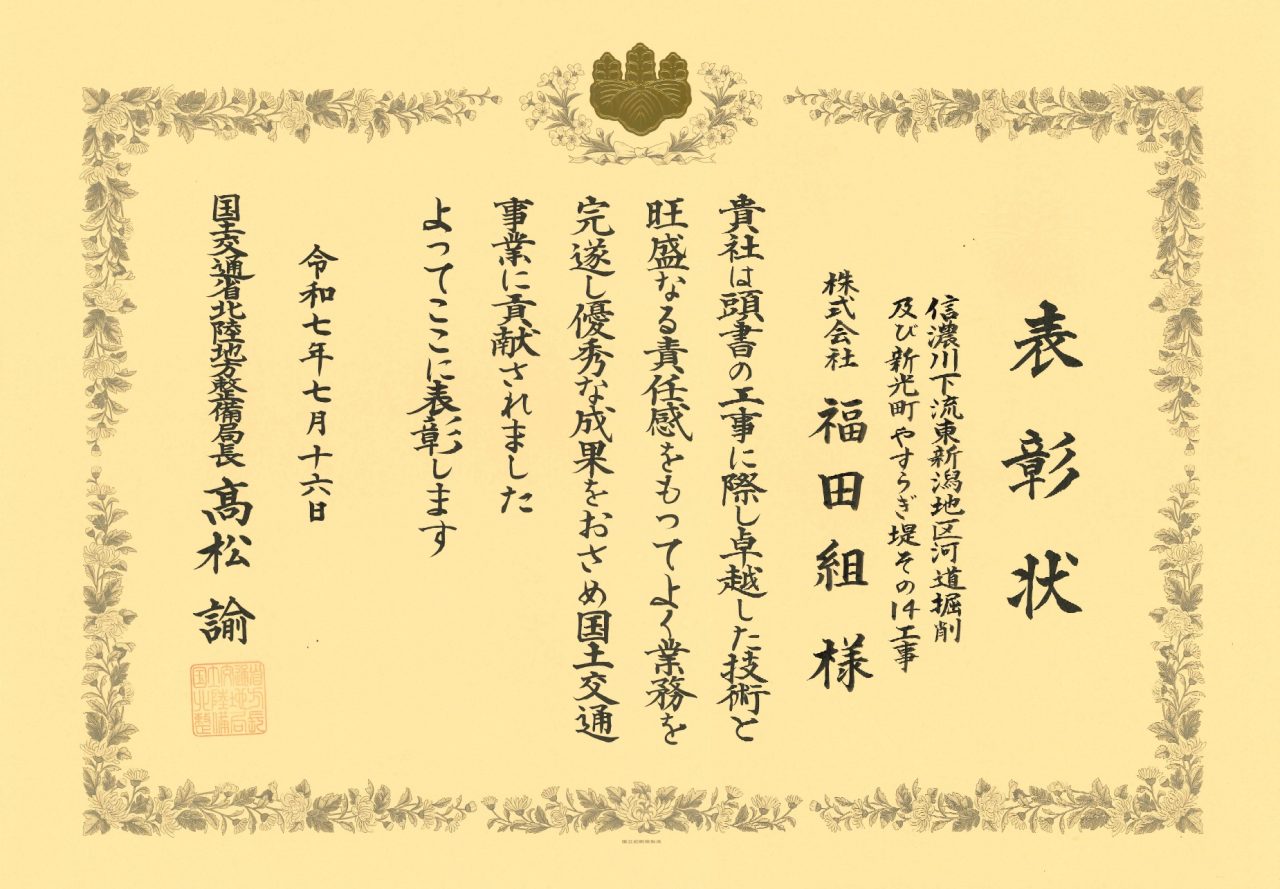 表彰状
信濃川下流東新潟地区河道掘削
及び新光町やすらぎ堤その14工事
株式会社 福田組様
貴社は頭書の工事に際し卓越した技術と
旺盛なる責任感をもってよく業務を
完遂し優秀な成果をおさめ国土交通
事業に貢献されました
よってここに表彰します
令和七年七月十六日
国土交通省北陸地方整備局長 髙松諭